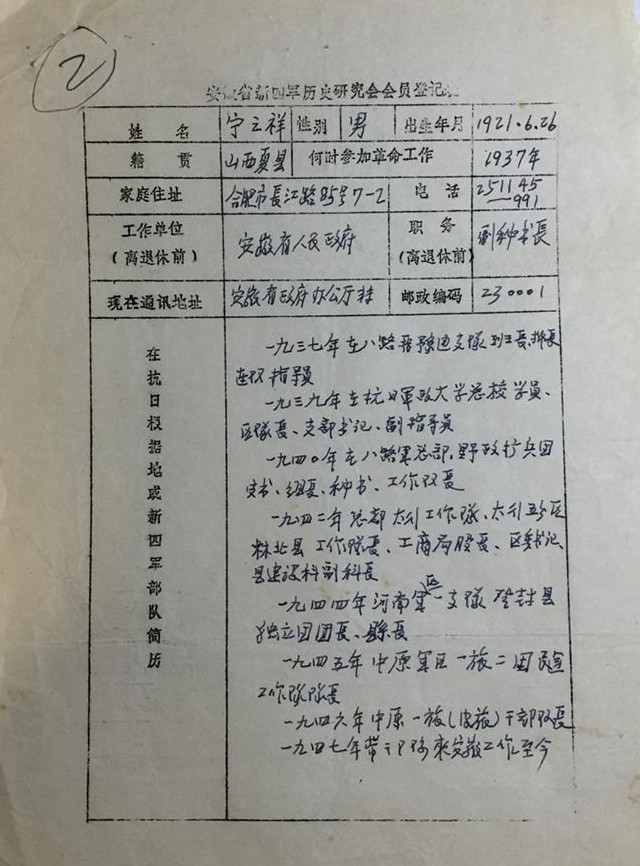 2
安徽省新四军历史研究会会员登记表
姓名 宁立祥 性别 男 出生年月 1921.6.26
籍贯 山西夏县 何时参加革命工作 1937年
家庭住址 合肥市長江路85号7-2 电话 251145
—991
工作单位 安徽省人民政府 职务 副秘书長
(离退休前) (离退休前)
现在通讯地址 安徽省政府办公厅 邮政编码 230001
在抗日根据地或新四军部队简历
一九三七年在八路晋豫边支隊班長、排長
连级指导員
一九三九年在抗日軍政大学总校学員、
区隊長、支部书记、副指导員
一九四〇年在八路軍总部,野政扩兵团
文书、组長、秘书、工作队長
一九四二年总部太行工作隊、太行五分区
林北县工作隊長、工商局股長、区委书记、
县建设科副科長
一九四四年河南軍区一支隊登封县
独立团团長、縣長
一九四五年中原軍区一旅二团民运
工作隊隊長
一九四六年中原一旅(皮旅)干部队長
一九四七年带部隊來安徽工作至今